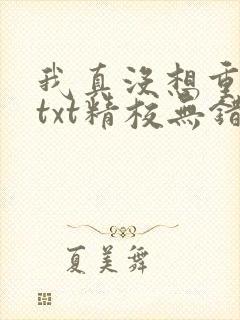 我真没想重
txt精校无错
夏美舞